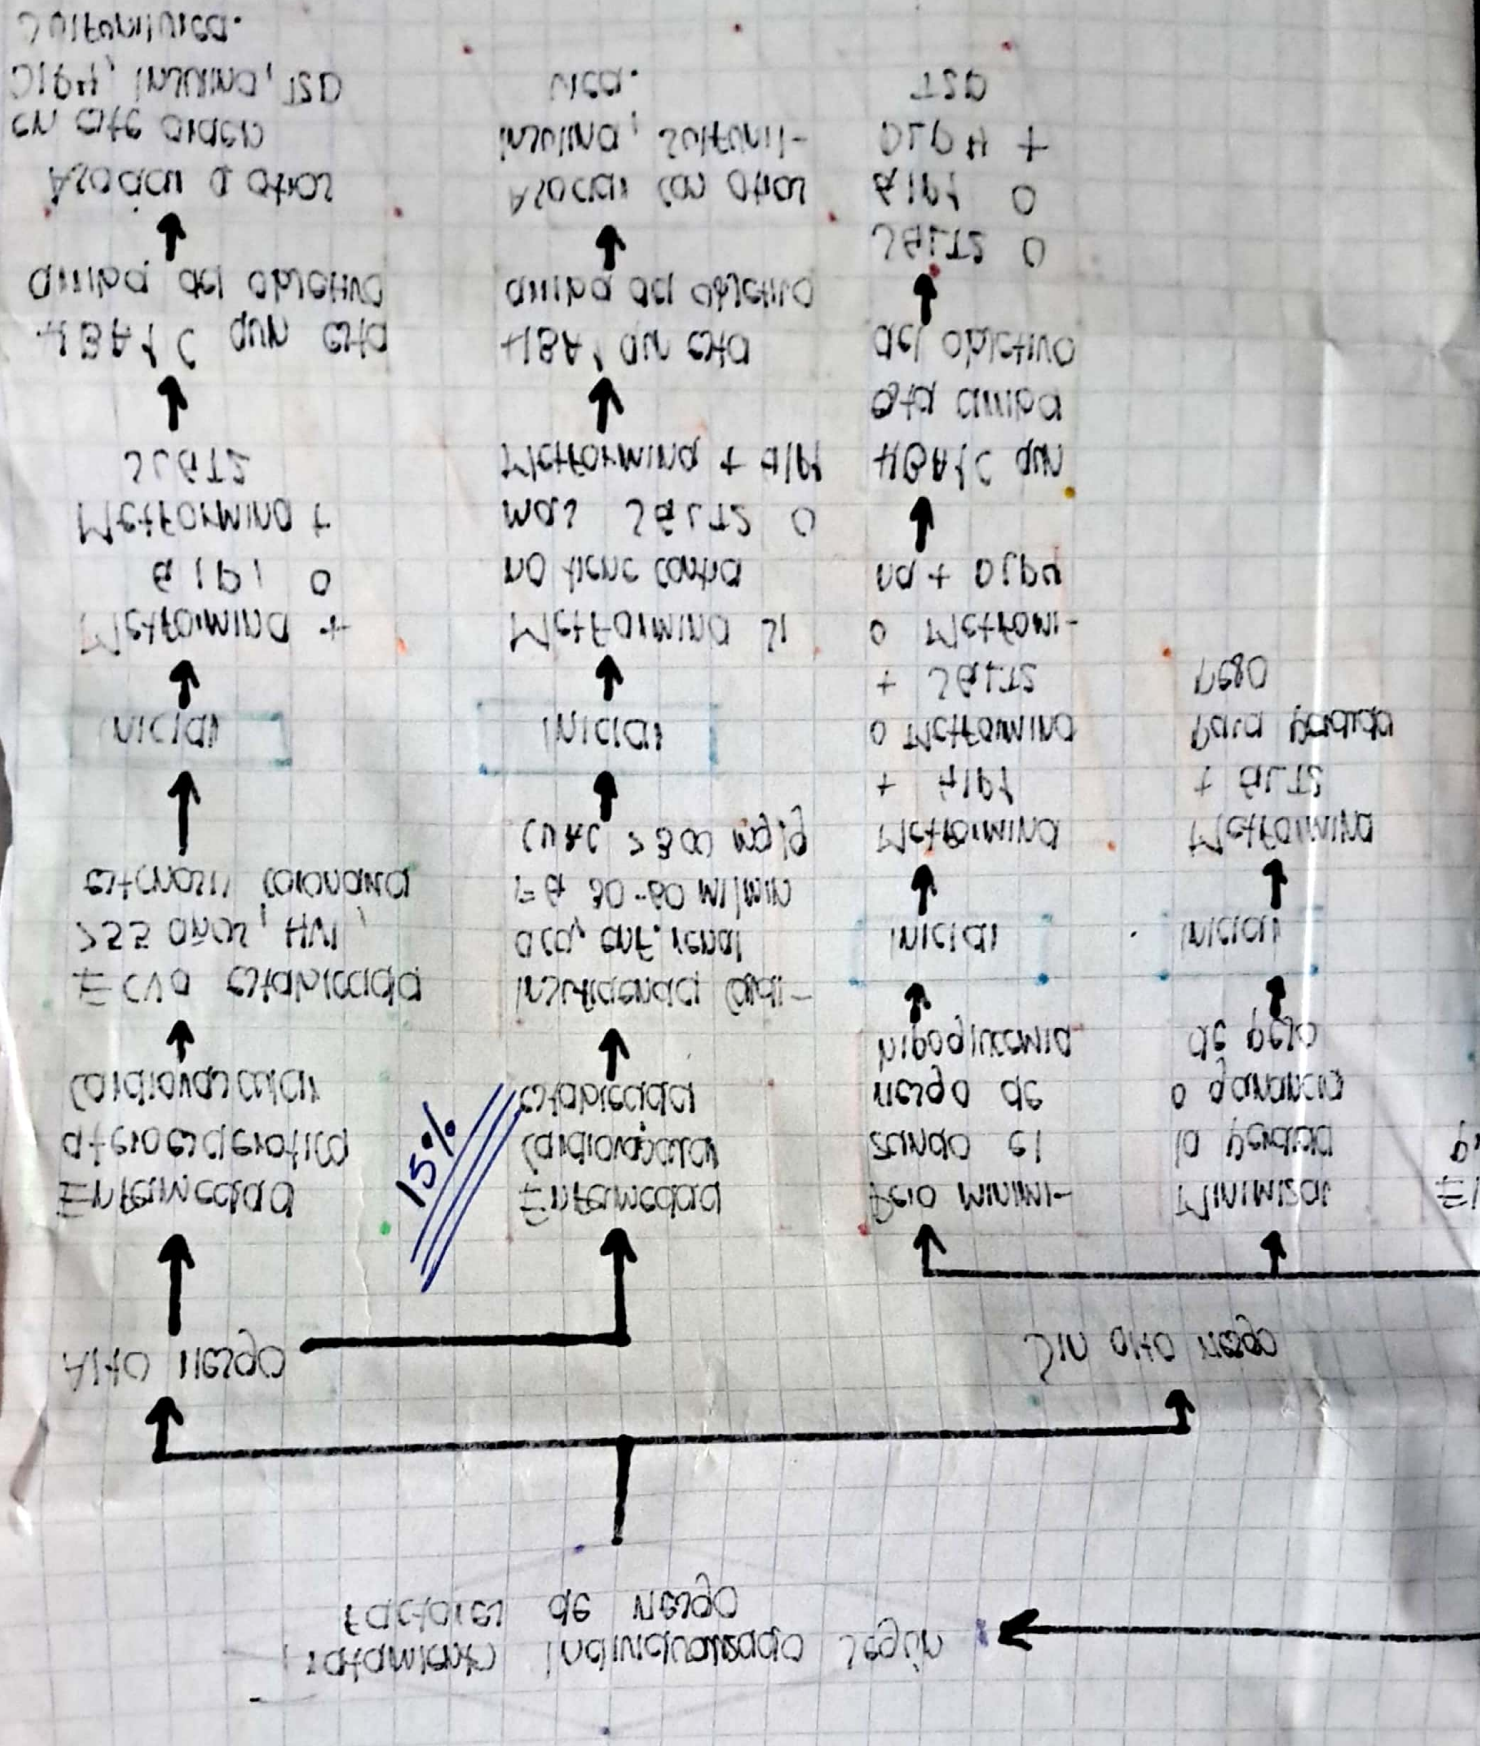 Tratamiento individualizado según
factores de riesgo
Alto riesgo
Enfermedad
ateroesclerotica
cardiovascular
ECVa establecida
>55 años, HVI,
estenosis coronaria
iniciar
Metformina +
GlP1 o
Metformina +
SLGT2
HBA1C aun esta
arriba del objetivo
Asociar a otras
en este orden
DIP4, insulina, TSD
Sulfonilurea.
15%
Enfermedad
cardiovascular
establecida
insuficiencia cardi-
aca, enf. renal
FG 30-60 ml/min
CUAC > 300 mg/g
iniciar
Metformina si
no tiene contra
mas SGLT2 o
Metformina + GlP1
HBA1 aun esta
arriba del objetivo
Asociar con otras
insulina, sulfonil-
urea.
Sin alto riesgo
Pero minimi-
zando el
riesgo de
hipoglucemia
iniciar
Metformina
+ GlP1
o Metformina
+ SGLT2
o Metformi-
na + DLP4
HBA1C aun
esta arriba
del objetivo
SGLT2 o
GlP1 o
DLP4 +
TSD
Minimizar
la perdida
o ganancia
de peso
iniciar
Metformina
+ GLT2
Para perdida
peso